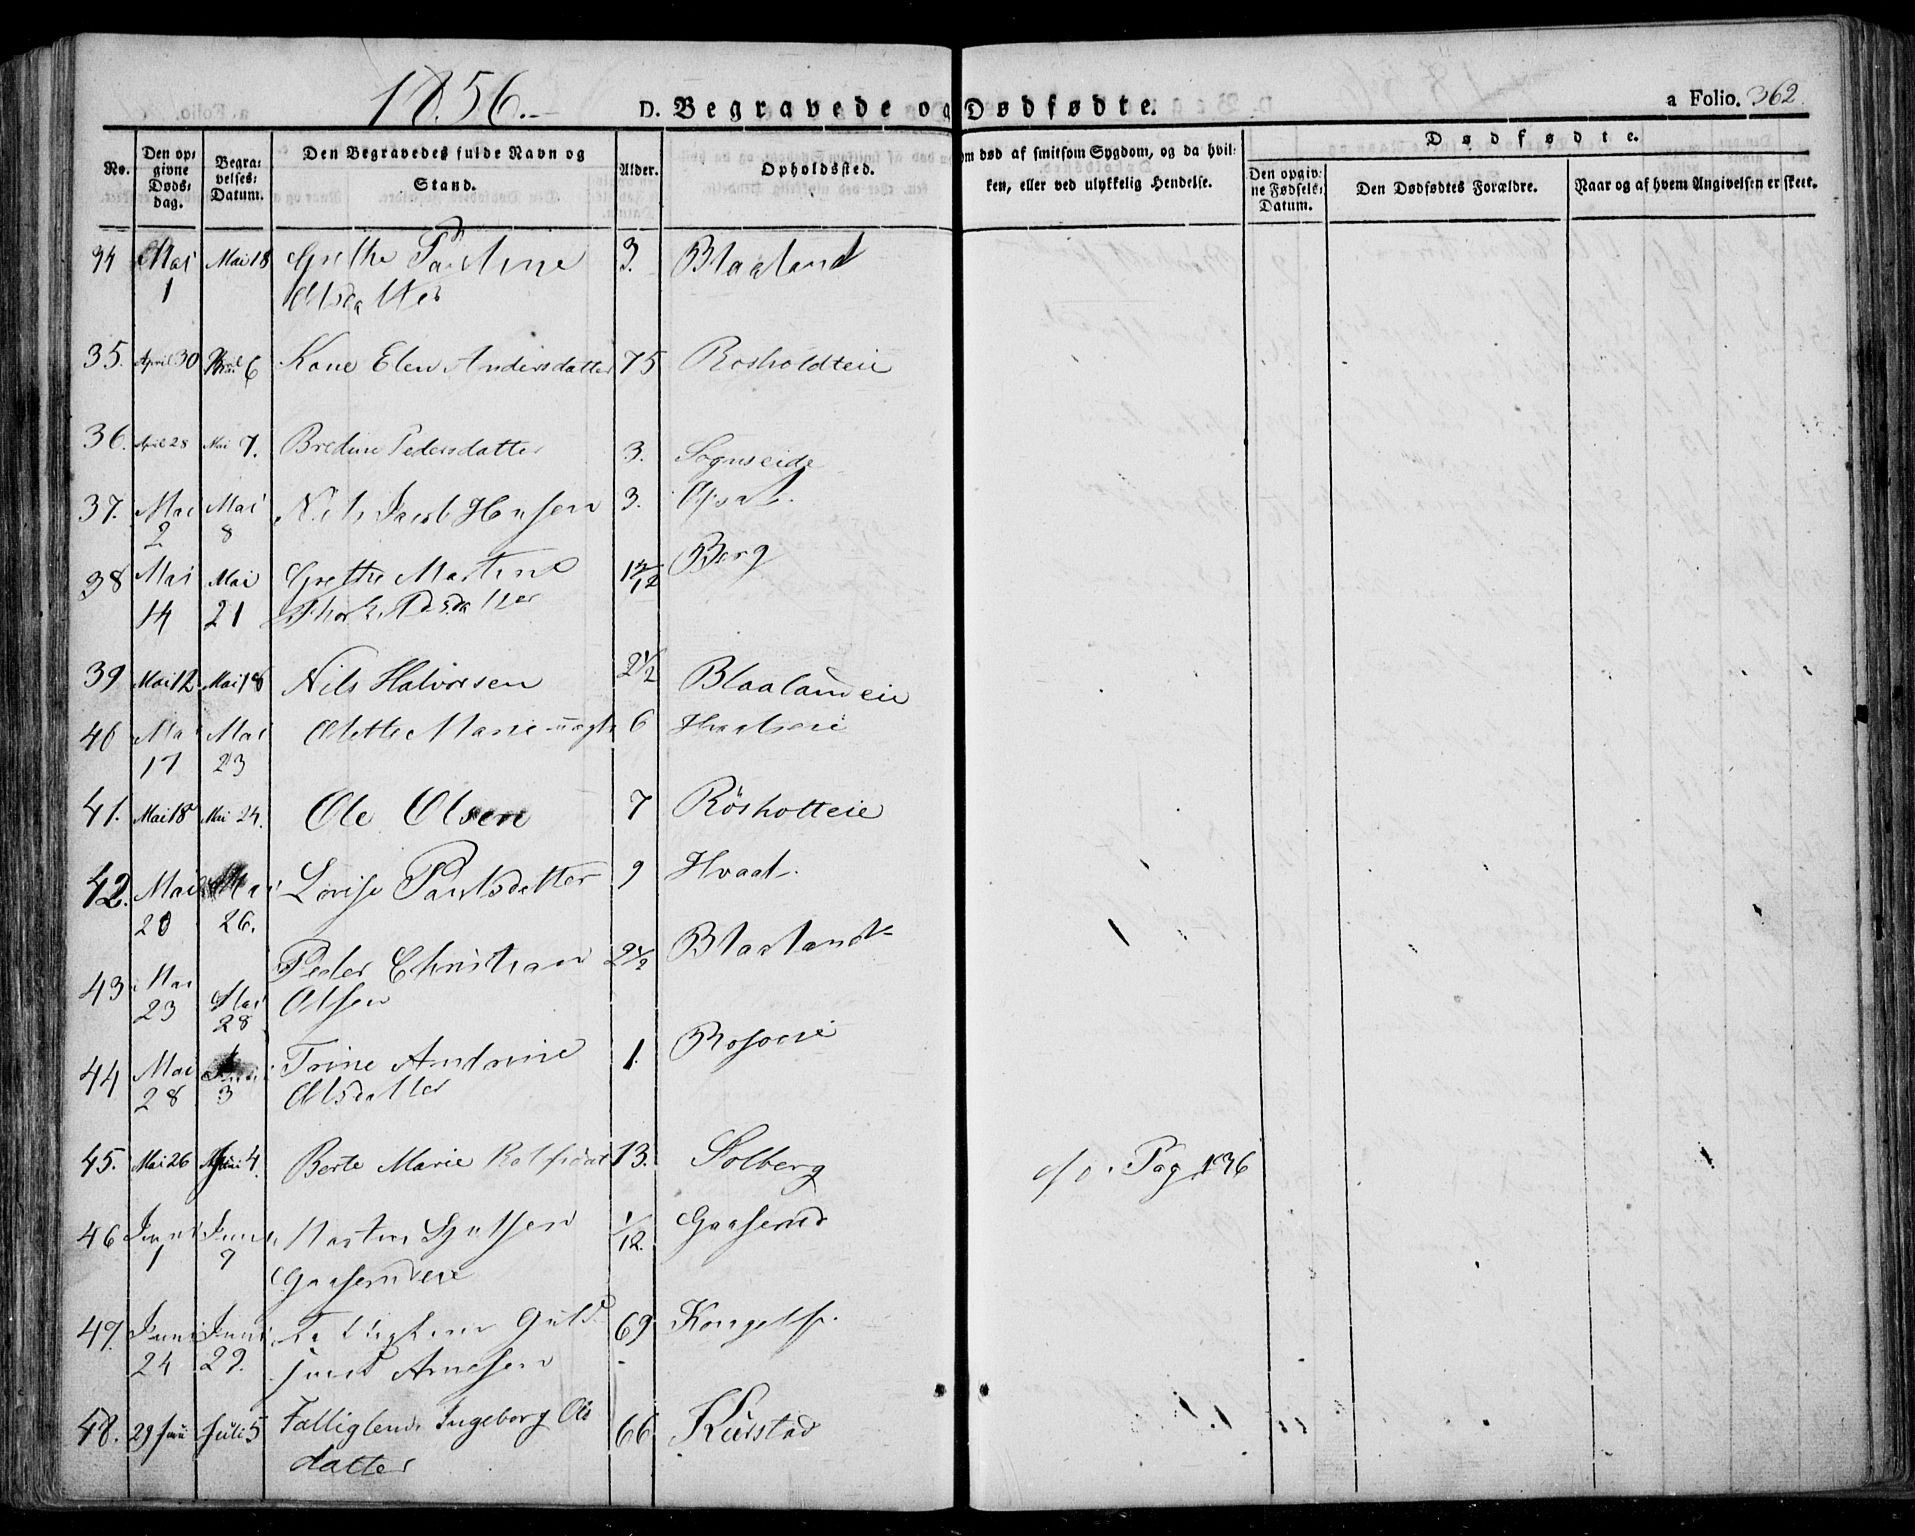 1856.
D. Begravede og Dødfødte.
a Folio. 362.
No.
Den opgivne Dødsdag.
Begravelses: Datum.
Den Begravedes fulde Navn og Stand.
Alder.
Opholdssted.
Om død af smitsom Sygdom, og da hvilken, eller ved ulykkelig Hendelse.
Dødfødte.
Den opgivne Fødsels: Datum.
Den Dødfødtes Forældre.
Naar og af hvem Angivelsen er skeet.
34 Mai 1 Mai 18 Grethe Pauline 3. Blaaland
Olsdatter
35. April 30 6 Kone Elen Andersdatter 75 Rosholdteie
36. April 28 Mai 7. Bredine Pedersdatter 3. Sognseide
37. Mai 2 Mai 8 Nils Jacob Hansen 3. Opsal.
38 Mai 14 Mai 21 Grethe Martine Berg
39 Mai 12. Mai 18 Nils Halvorsen 2 1/2 Blaalandeie
40 Mai 17 Mai 23 Olette Marie 6
41. Mai 18 Mai 24. Ole Olsen 7 Røsholteie
42. Mai 20 Mai 26. Lovise Paulsdatter 9 Hvaal.
43 Mai 23 Mai 28 Peder Christian 2 1/2 Blaaland
Olsen
44 Mai 28 Juni 3 Trine Andrine 1.
Olsdatter
45. Mai 26 Juni 4. Berte Marie 13. Solberg
c/o. Pag. 136
46 Juni 1 Juni 9 1/12. Gaaserud
Gaaserudeie
47. Juni 24 Juni 29. Guld 69
Arnesen
48. 29 Juni Juli 5 Falliglem Ingeborg Ols 66 Kurstad
datter